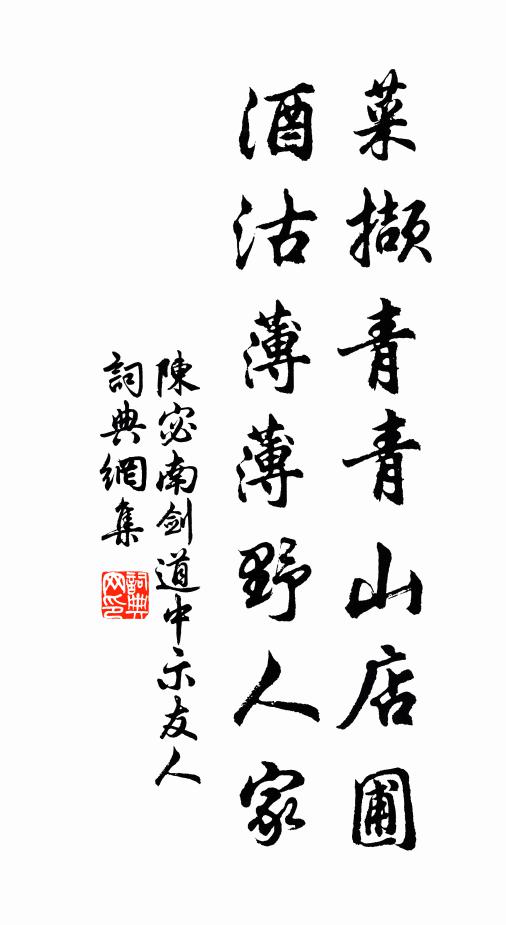 菜擷青青山店圃
酒沽薄薄野人家
陳宓南劍道中示友人
詞典網集
詞典網印